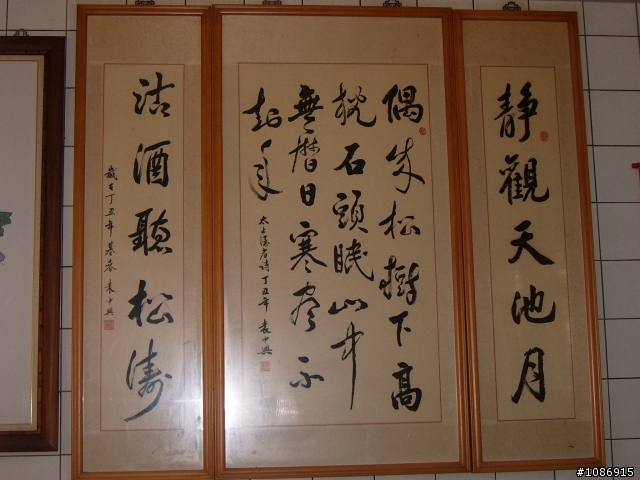 靜觀天池月
偶來松樹下高
枕石頭眠山中
無曆日寒盡不
知年
太上隱者詩丁丑年 袁中興
沽酒聽松濤
歲在丁丑年暮春 袁中興
#1086915